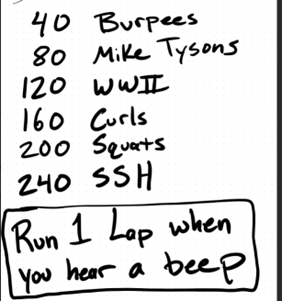 40 Burpees
80 Mike Tysons
120 WWII
160 Curls
200 Squats
240 SSH
Run 1 Lap when
you hear a beep